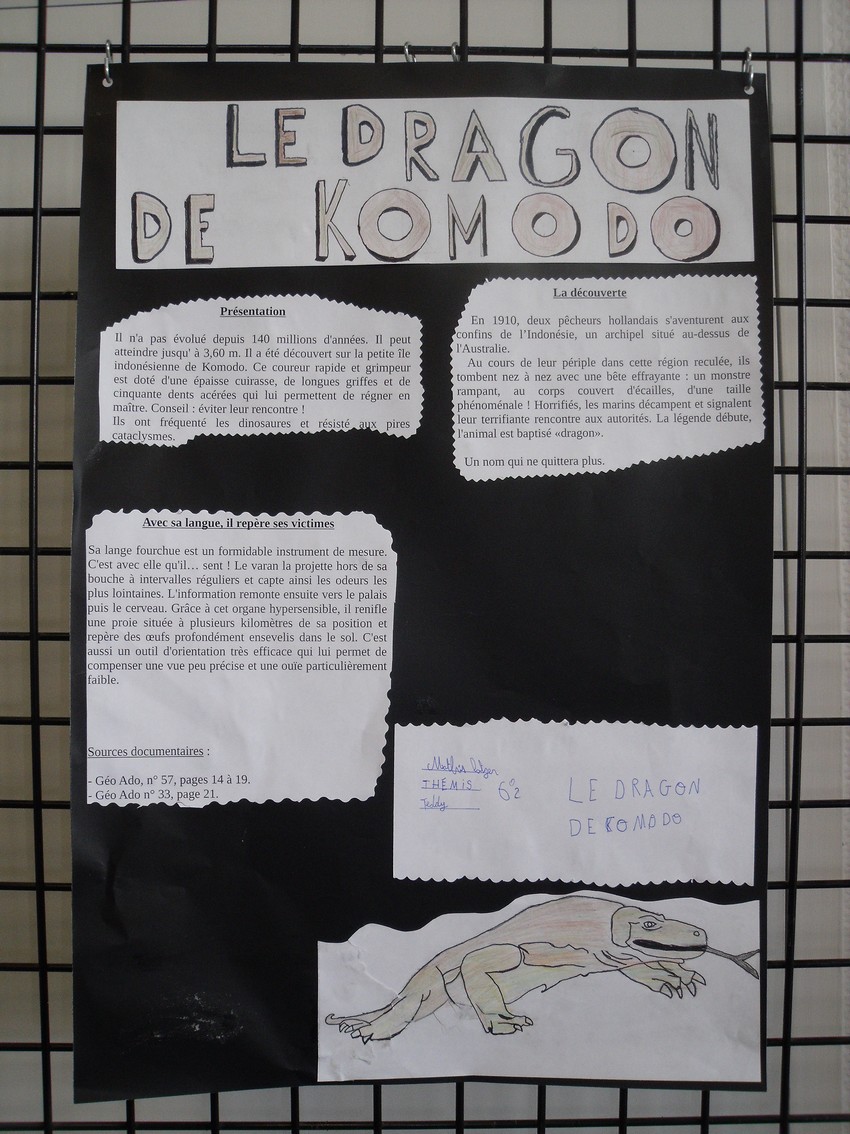 LE DRAGON
DE KOMODO
Présentation
Il n'a pas évolué depuis 140 millions d'années. Il peut
atteindre jusqu' à 3,60 m. Il a été découvert sur la petite île
indonésienne de Komodo. Ce coureur rapide et grimpeur
est doté d'une épaisse cuirasse, de longues griffes et de
cinquante dents acérées qui lui permettent de régner en
maître. Conseil : éviter leur rencontre !
Ils ont fréquenté les dinosaures et résisté aux pires
cataclysmes.
La découverte
En 1910, deux pêcheurs hollandais s'aventurent aux
confins de l'Indonésie, un archipel situé au-dessus de
l'Australie.
Au cours de leur périple dans cette région reculée, ils
tombent nez à nez avec une bête effrayante : un monstre
rampant, au corps couvert d'écailles, d'une taille
phénoménale ! Horrifiés, les marins décampent et signalent
leur terrifiante rencontre aux autorités. La légende débute,
l'animal est baptisé «dragon».
Un nom qui ne quittera plus.
Avec sa langue, il repère ses victimes
Sa lange fourchue est un formidable instrument de mesure.
C'est avec elle qu'il… sent ! Le varan la projette hors de sa
bouche à intervalles réguliers et capte ainsi les odeurs les
plus lointaines. L'information remonte ensuite vers le palais
puis le cerveau. Grâce à cet organe hypersensible, il renifle
une proie située à plusieurs kilomètres de sa position et
repère des œufs profondément ensevelis dans le sol. C'est
aussi un outil d'orientation très efficace qui lui permet de
compenser une vue peu précise et une ouïe particulièrement
faible.
Sources documentaires :
- Géo Ado, n° 57, pages 14 à 19.
- Géo Ado n° 33, page 21.
Mathis
THÉMIS
Teddy
6°2
LE DRAGON
DE KOMODO